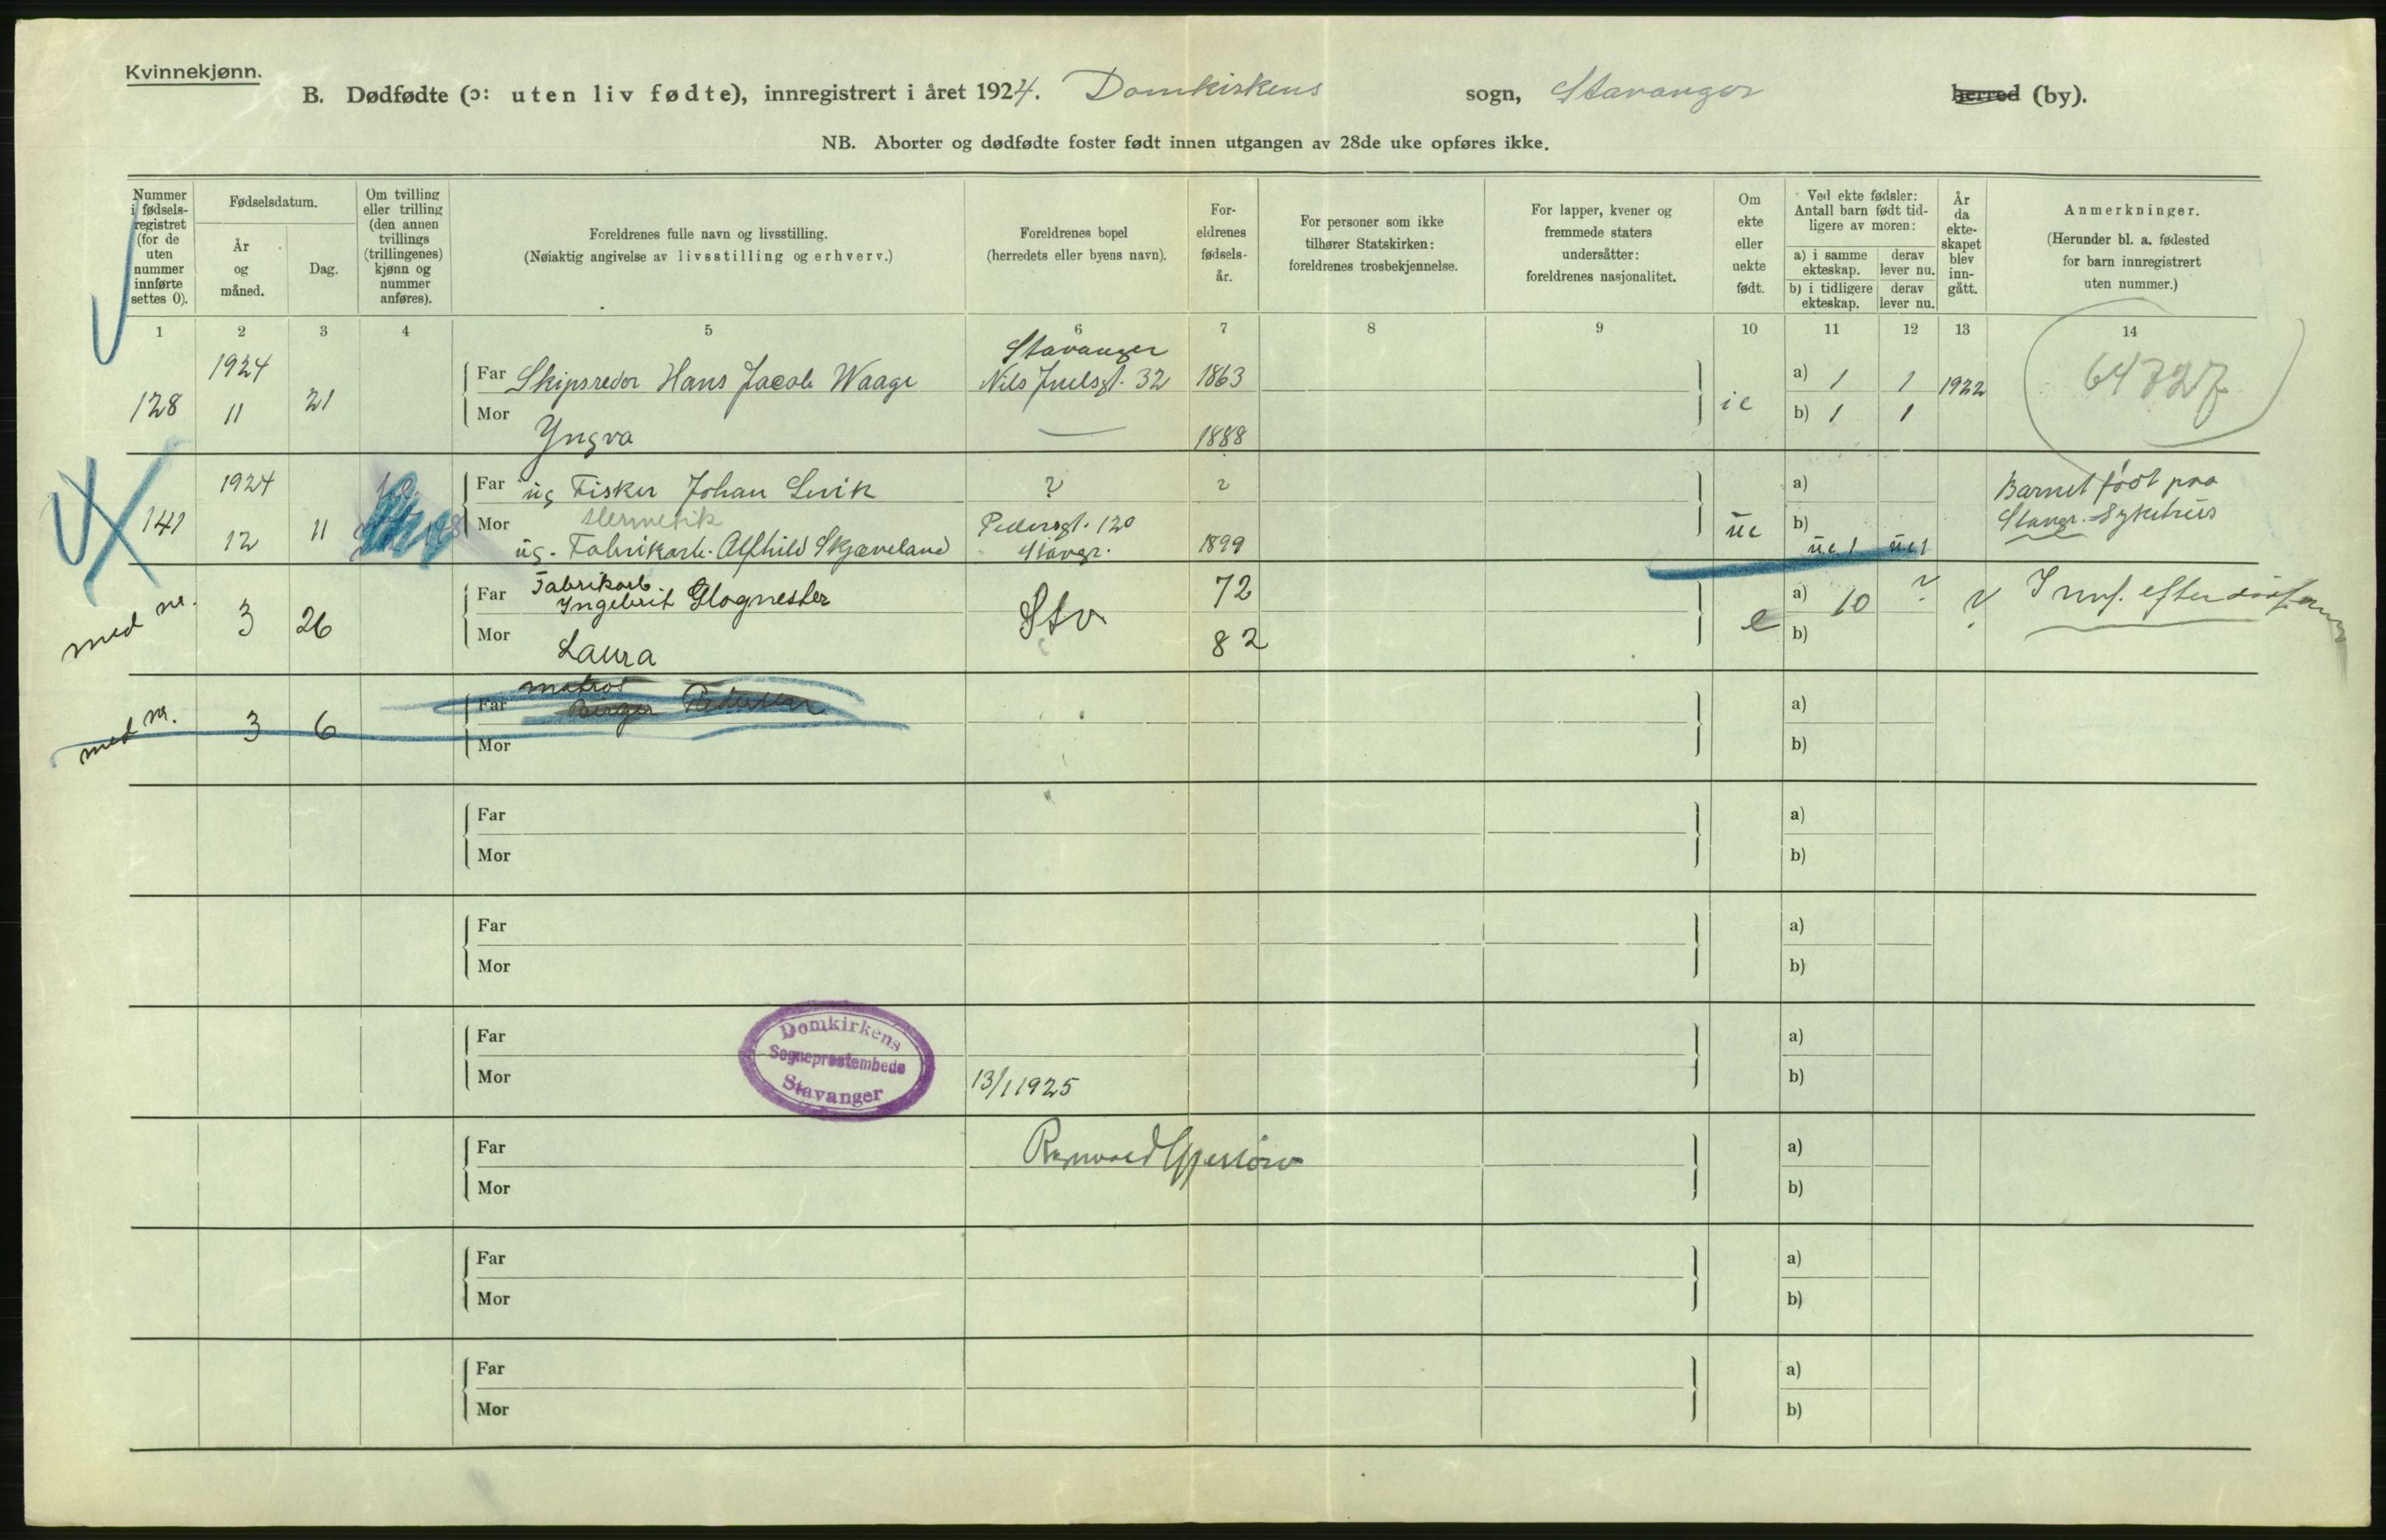 Kvinnekjønn.
B. Dødfødte (ɔ: uten liv fødte), innregistrert i året 1924. Domkirkens sogn, Stavanger herred (by).
NB. Aborter og dødfødte foster født innen utgangen av 28de uke opføres ikke.
Nummer i fødsels-registret (for de uten nummer innførte settes 0).
Fødselsdatum.
År og måned.
Dag.
Om tvilling eller trilling (den annen tvillings (trillingenes) kjønn og nummer anføres).
Foreldrenes fulle navn og livsstilling.
(Nøiaktig angivelse av livsstilling og erhverv.)
Foreldrenes bopel
(herredets eller byens navn).
For-eldrenes fødsels-år.
For personer som ikke tilhører Statskirken: foreldrenes trosbekjennelse.
For lapper, kvener og fremmede staters undersåtter: foreldrenes nasjonalitet.
Om ekte eller uekte født.
Ved ekte fødsler: Antall barn født tid-ligere av moren:
a) i samme ekteskap.
derav lever nu.
b) i tidligere ekteskap.
derav lever nu.
År da ekte-skapet blev inn-gått.
Anmerkninger.
(Herunder bl. a. fødested for barn innregistrert uten nummer.)
1 2 3 4 5 6 7 8 9 10 11 12 13 14
128 1924 11 21
Far Skipsredor Hans Jacob Waage Stavanger Nils Juelsgt. 32 1863 a) 1 1 1922
Mor Yngva — 1888 b) 1 1
141 1924 12 11
Far ug Fisker Johan ? ? a)
Mor Hermetik
ug. Fabrikarb. Alfhild Skjæveland Pedersgt. 120 Stavgr. 1899 ue b) u.e. 1 u.e. 1
Barnet født paa
Stavgr. Sykehus
med nr. 3 26
Far Fabrikarb.
Ingebrit Glognester Stv 72 e a) 10 ? ?
Mor Laura 82 b)
med nr. 3 6
Far matros
Birger Pedersen a)
Mor b)
Far a)
Mor b)
Far a)
Mor b)
Domkirkens
Sogneprestembede
Stavanger
Far a)
Mor 13/1 1925 b)
Far a)
Mor b)
Far a)
Mor b)
Far a)
Mor b)